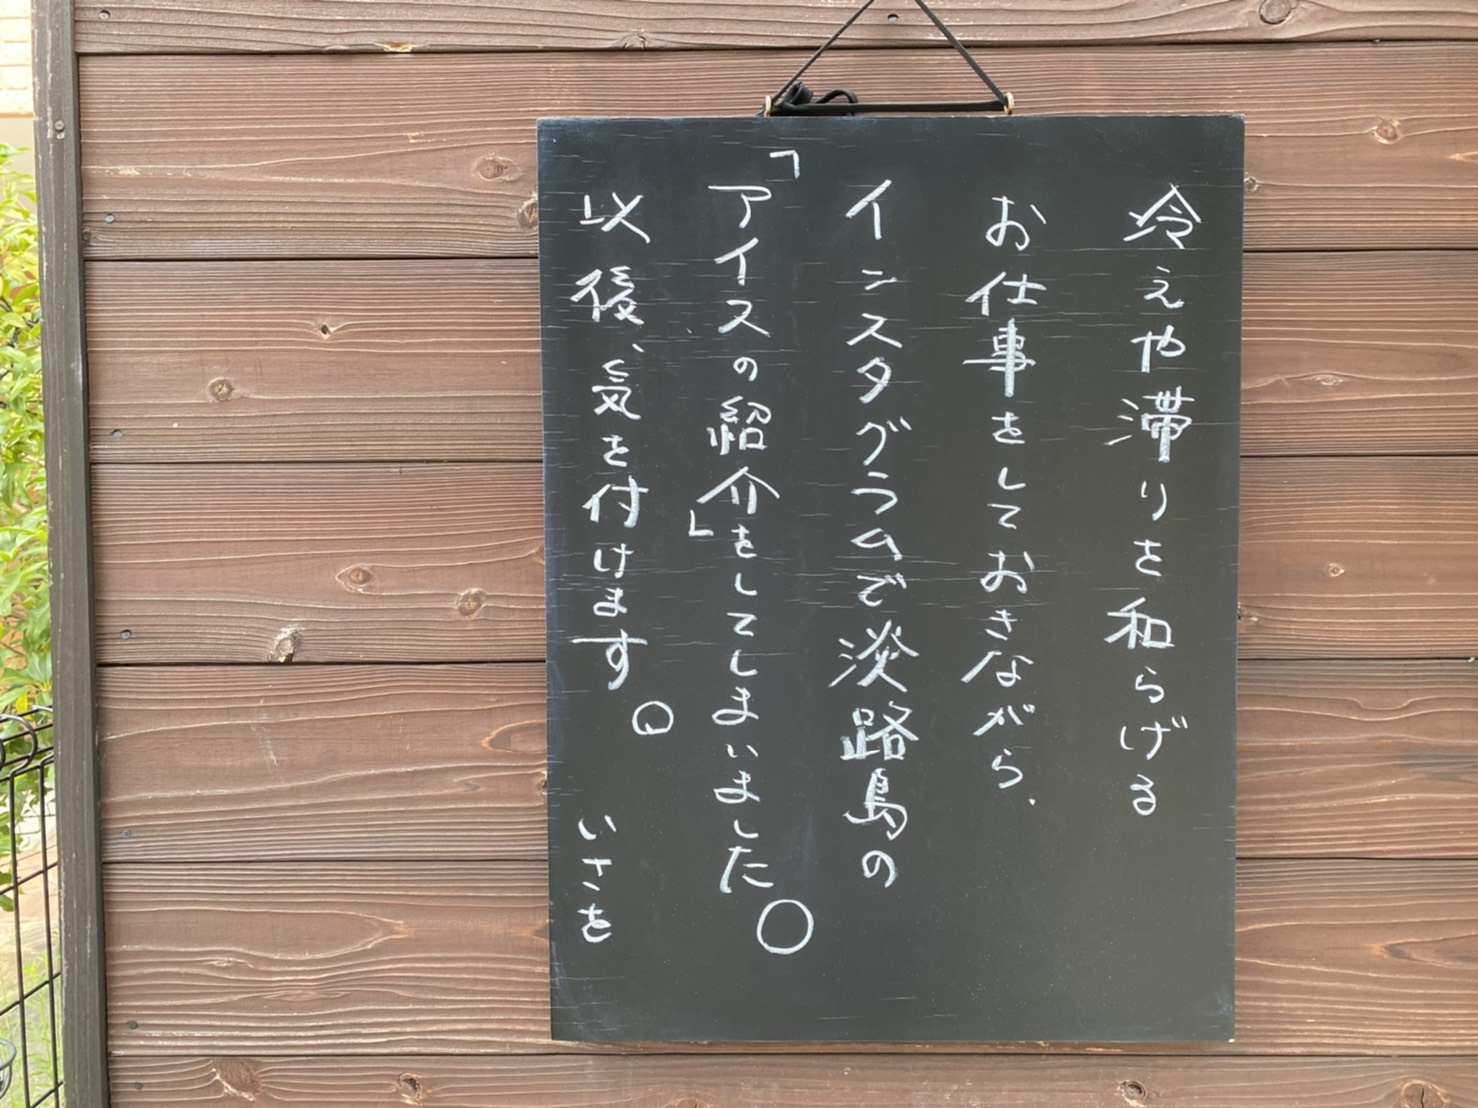 冷えや滞りを和らげる
お仕事をしておきながら、
インスタグラムで淡路島の
「アイスの紹介」をしてしまいました。
以後、気を付けます。 いさを